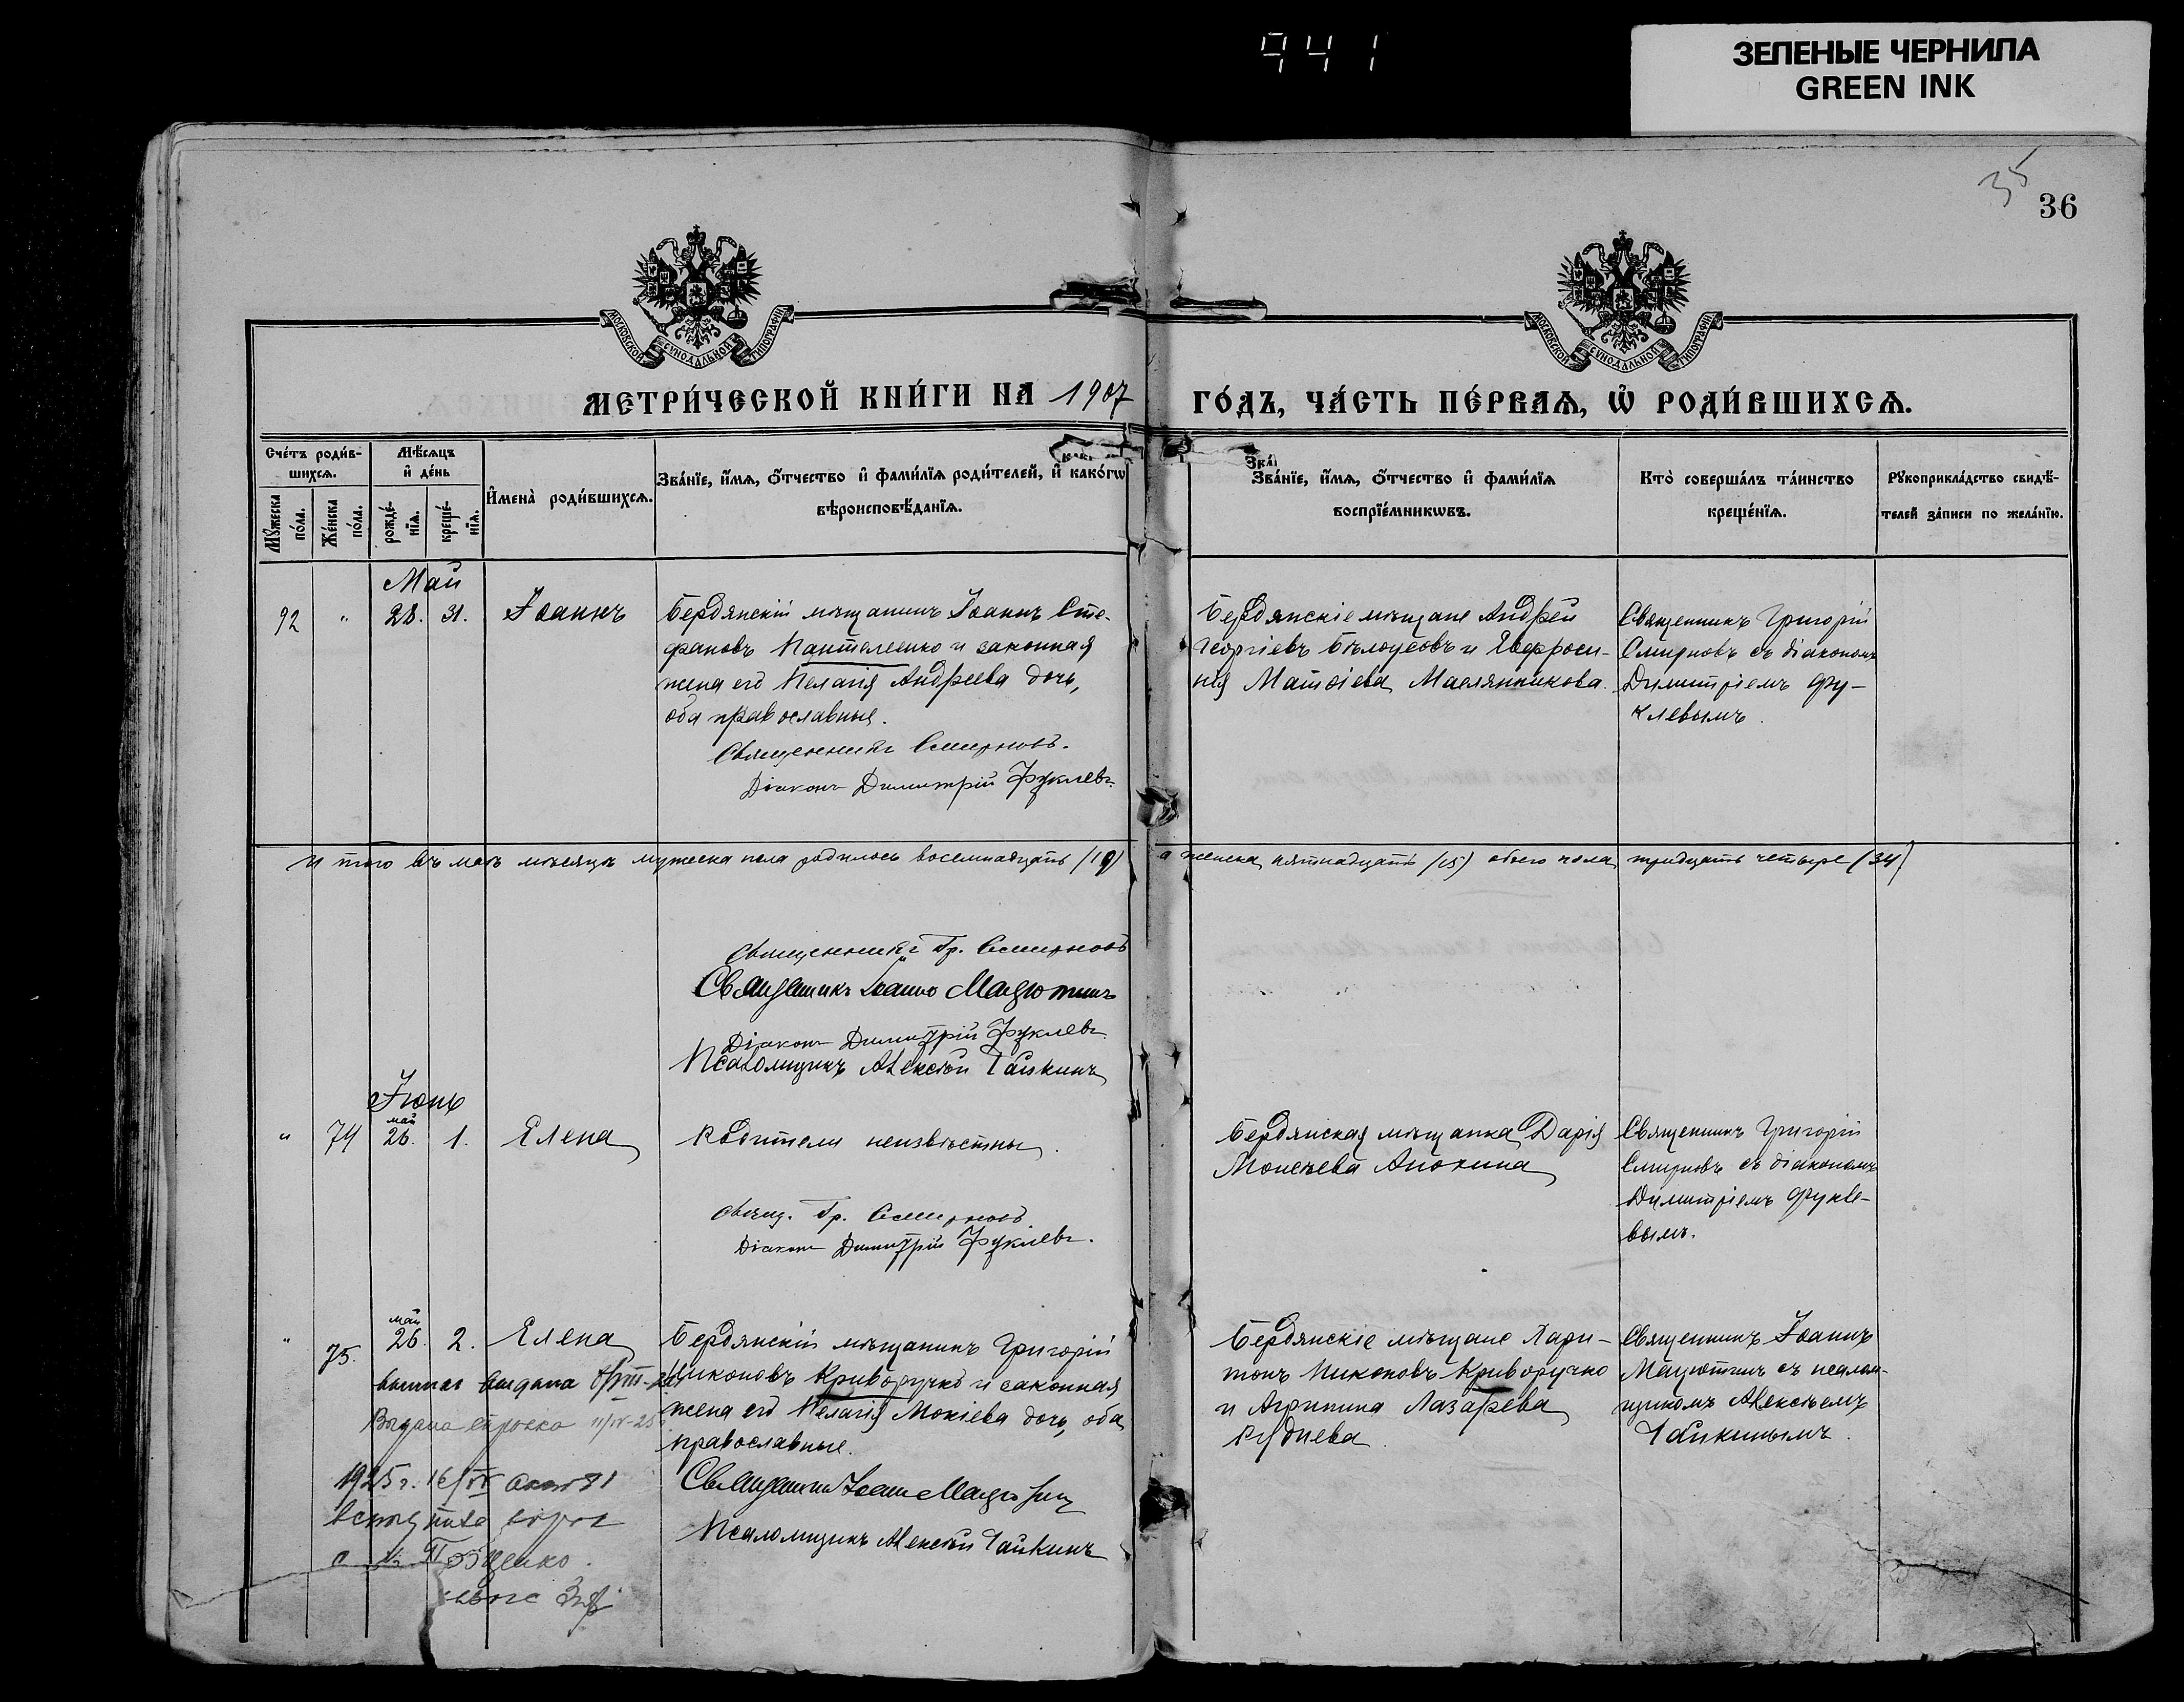 941
ЗЕЛЕНЫЕ ЧЕРНИЛА
GREEN INK
35
36
МОСКОВСКОЙ СѴНОДАЛЬНОЙ ТИПОГРАФІИ
МОСКОВСКОЙ СѴНОДАЛЬНОЙ ТИПОГРАФІИ
МЕТРИ́ЧЕСКОЙ КНИ́ГИ НА 1907
ГО́ДЪ, ЧА́СТЬ ПЕ́РВАѦ, Ѡ҆ РОДИ́ВШИХСѦ.
Сче́тъ роди́в-
шихсѧ.
Мѣ́сѧцъ
и҆ де́нь
Мꙋ́жеска по́ла.
Же́нска по́ла.
рожде́-
нїѧ.
креще́-
нїѧ.
И҆мена̀ роди́вшихсѧ.
Зва́нїе, и҆́мѧ, ѻ҆́тчество и҆ фами́лїѧ роди́телей, и҆ како́гѡ
вѣроисповѣ́данїѧ.
Зва́нїе, и҆́мѧ, ѻ҆́тчество и҆ фами́лїѧ
воспрїе́мникѡвъ.
Кто̀ соверша́лъ та́инство
креще́нїѧ.
Рꙋкоприкла́дство свидѣ́-
телей за́писи по жела́нїю.
Май
92 " 28. 31. Іоаннъ
Бердянскій мѣщанинъ Іоаннъ Сте-
фановъ Пантелеенко и законная
жена его Пелагія Андреева дочь,
оба православные.
Священникъ Смирновъ.
Діаконъ Димитрій Фуклевъ.
Бердянскіе мѣщане Андрей
Георгіевъ Бѣлоусовъ и Евфроси-
нія Матѳіева Маслянникова.
Священникъ Григорій
Смирновъ съ діакономъ
Димитріемъ Фу-
клевымъ.
Итого въ маѣ мѣсяцѣ мужеска пола родилось восемнадцать (19) а женска пятнадцать (15) обоего пола тридцать четыре (34)
Священникъ Гр. Смирновъ
Священникъ Іоаннъ Мацютинъ
Діаконъ Димитрій Фуклевъ
Псаломщикъ Алексѣй Гайкинъ
Іюнь
" 74 май 26. 1. Елена
Родители неизвѣстны.
Свящ. Гр. Смирновъ
Діаконъ Димитрій Фуклевъ.
Бердянская мѣщанка Дарія
Моисеева Анохина
Священникъ Григорій
Смирновъ съ діакономъ
Димитріемъ Фукле-
вымъ.
" 75. май 26. 2. Елена
Бердянскій мѣщанинъ Григорій
Никоновъ Криворучко и законная
жена его Пелагія Мокіева дочь, оба
православные.
Священникъ Іоаннъ Мацютинъ
Псаломщикъ Алексѣй Гайкинъ
Бердянскіе мѣщане Хари-
тонъ Никоновъ Криворучко
и Агрипина Лазарева
Руднева.
Священникъ Іоаннъ
Мацютинъ съ псалом-
щикомъ Алексѣемъ
Гайкинымъ.
выдана
Выдана
1925 г.